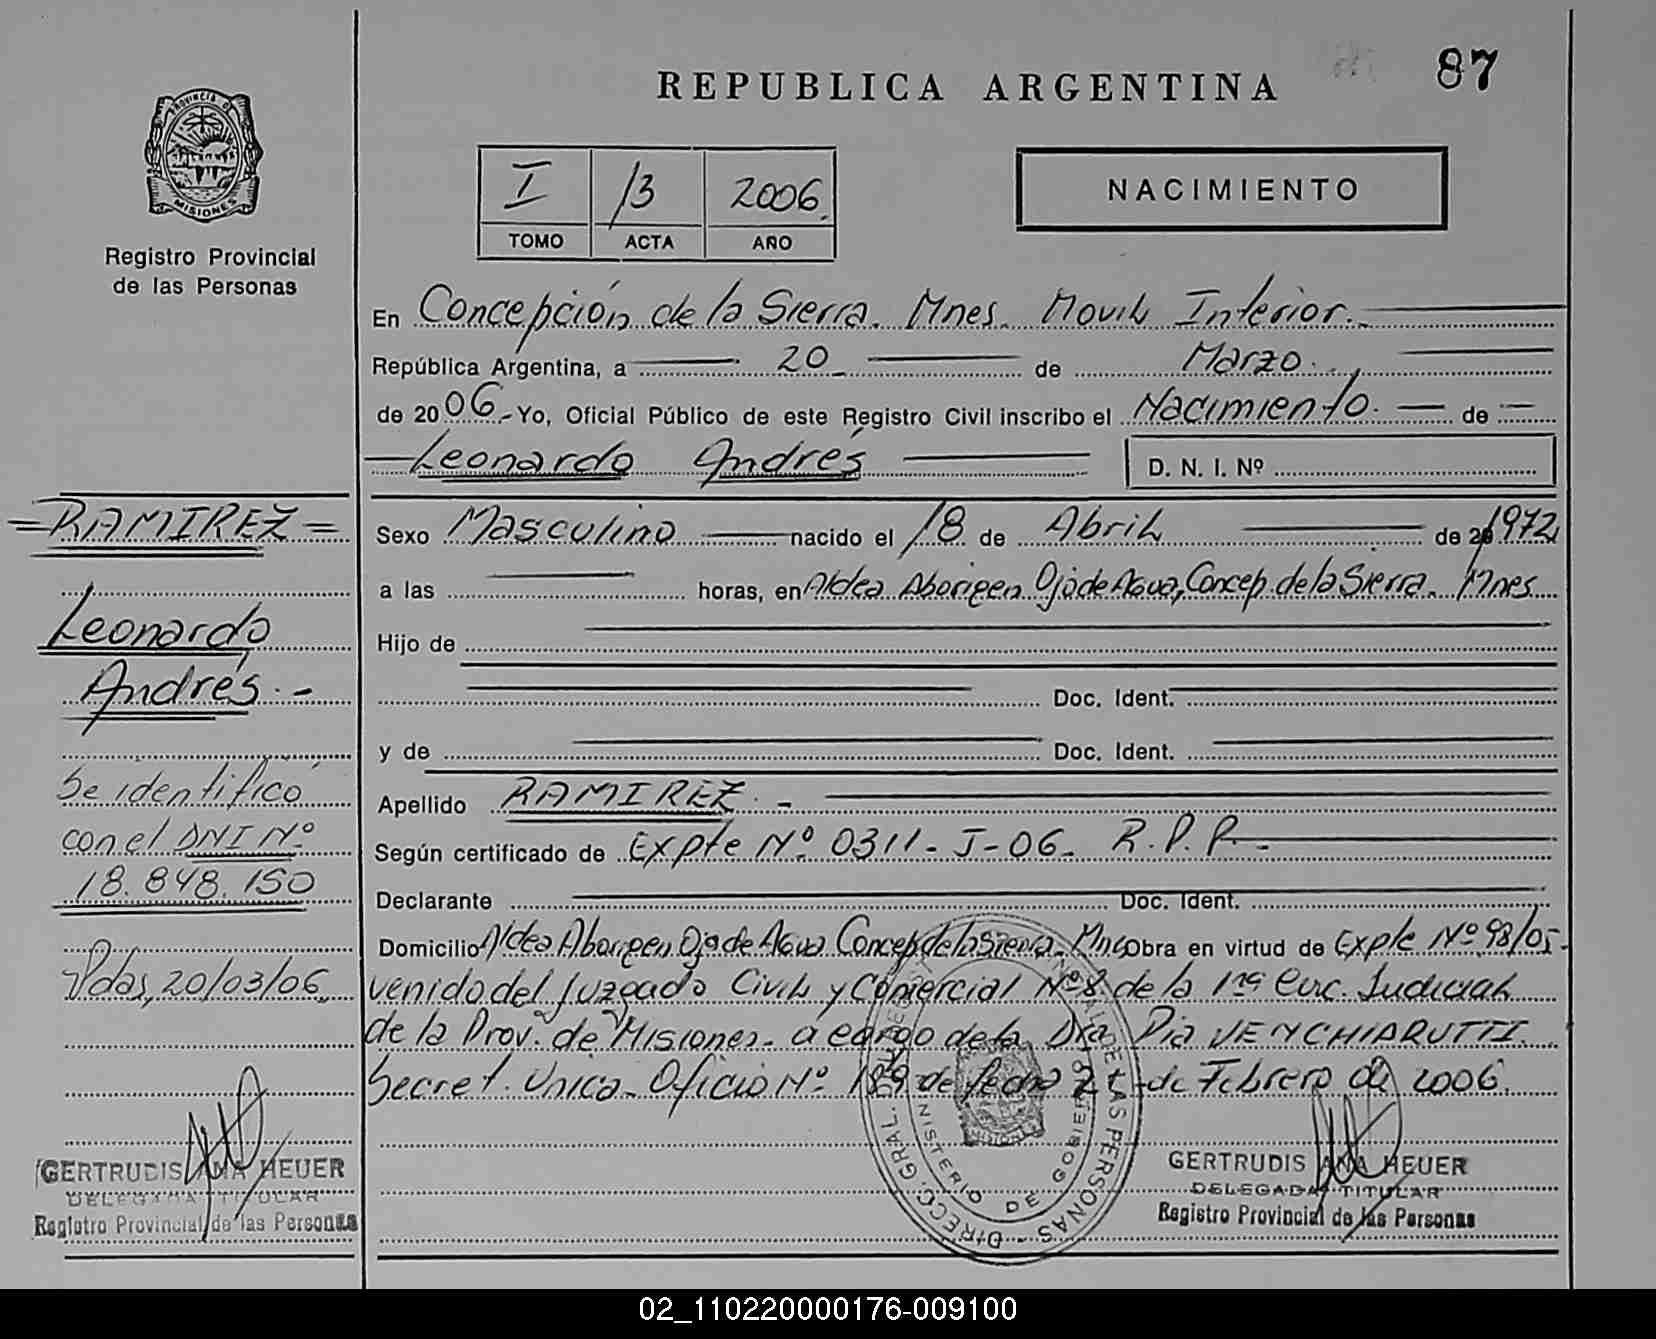 87
REPUBLICA ARGENTINA
PROVINCIA DE
MISIONES
Registro Provincial
de las Personas
I 13 2006.
TOMO ACTA AÑO
NACIMIENTO
En Concepción de la Sierra. Mnes. Movil Interior.
República Argentina, a 20 de Marzo.
de 2006.- Yo, Oficial Público de este Registro Civil inscribo el Nacimiento. de
Leonardo Andrés
D. N. I. Nº
Sexo Masculino nacido el 18 de Abril de 1972
a las horas, en Aldea Aborigen Ojo de Agua, Concep. de la Sierra. Mnes.
Hijo de
Doc. Ident.
y de Doc. Ident.
Apellido RAMIREZ.-
Según certificado de Expte Nº 0311-J-06. R.P.P.-
Declarante Doc. Ident.
Domicilio Aldea Aborigen Ojo de Agua Concep de la Sierra. Mnes Obra en virtud de Expte Nº 98/05.
venido del Juzgado Civil y Comercial Nº 8 de la 1ra Circ. Judicial
de la Prov. de Misiones. a cargo de la Dra Pia VENCHIARUTTI.
Secret. Unica. Oficio Nº 189 de fecha de Febrero de 2006.
=RAMIREZ=
Leonardo
Andrés.-
Se identificó
con el DNI Nº
18.848.150
Pdas, 20/03/06.
GERTRUDIS ANA HEUER
DELEGADA TITULAR
Registro Provincial de las Personas
DIRECC. GRAL. DEL REGIST PROVINCIAL DE LAS PERSONAS
MINISTERIO DE GOBIERNO
MISIONES
GERTRUDIS ANA HEUER
DELEGADA TITULAR
Registro Provincial de las Personas
02_110220000176-009100